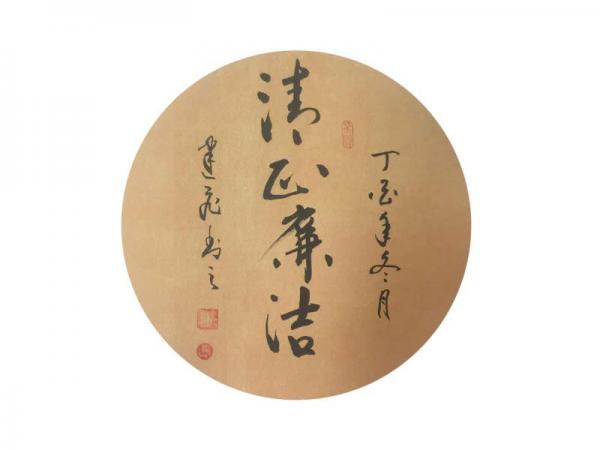 丁酉年冬月
清正廉洁
建飛書之